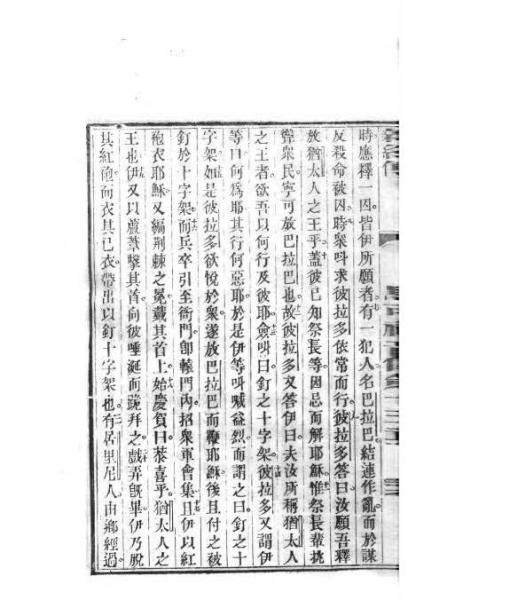 時應擇一囚皆伊所願者有一犯人名巴拉巴結連作亂而於謀
反殺命被囚時衆呌求彼拉多依常而行彼拉多答曰汝願吾釋
放猶太人之王乎蓋彼已知祭長等因忌而解耶穌惟祭長輩挑
聳衆民寧可放巴拉巴也故彼拉多又答伊曰夫汝所稱猶太人
之王者欲吾以何行及彼耶僉呌曰釘之十字架彼拉多又謂伊
等曰何爲耶其行何惡耶於是伊等呌喊益烈而謂之曰釘之十
字架如是彼拉多欲悅於衆遂放巴拉巴而鞭耶穌後且付之被
釘於十字架而兵卒引至衙門卽轅門內招衆軍會集且伊以紅
袍衣耶穌又編荆棘之冕戴其首上始慶賀曰恭喜乎猶太人之
王也伊又以蘆葦擊其首向彼唾涎而跪拜之戲弄旣畢伊乃脫
其紅袍而衣其己衣帶出以釘十字架也有居里尼人由鄉經過